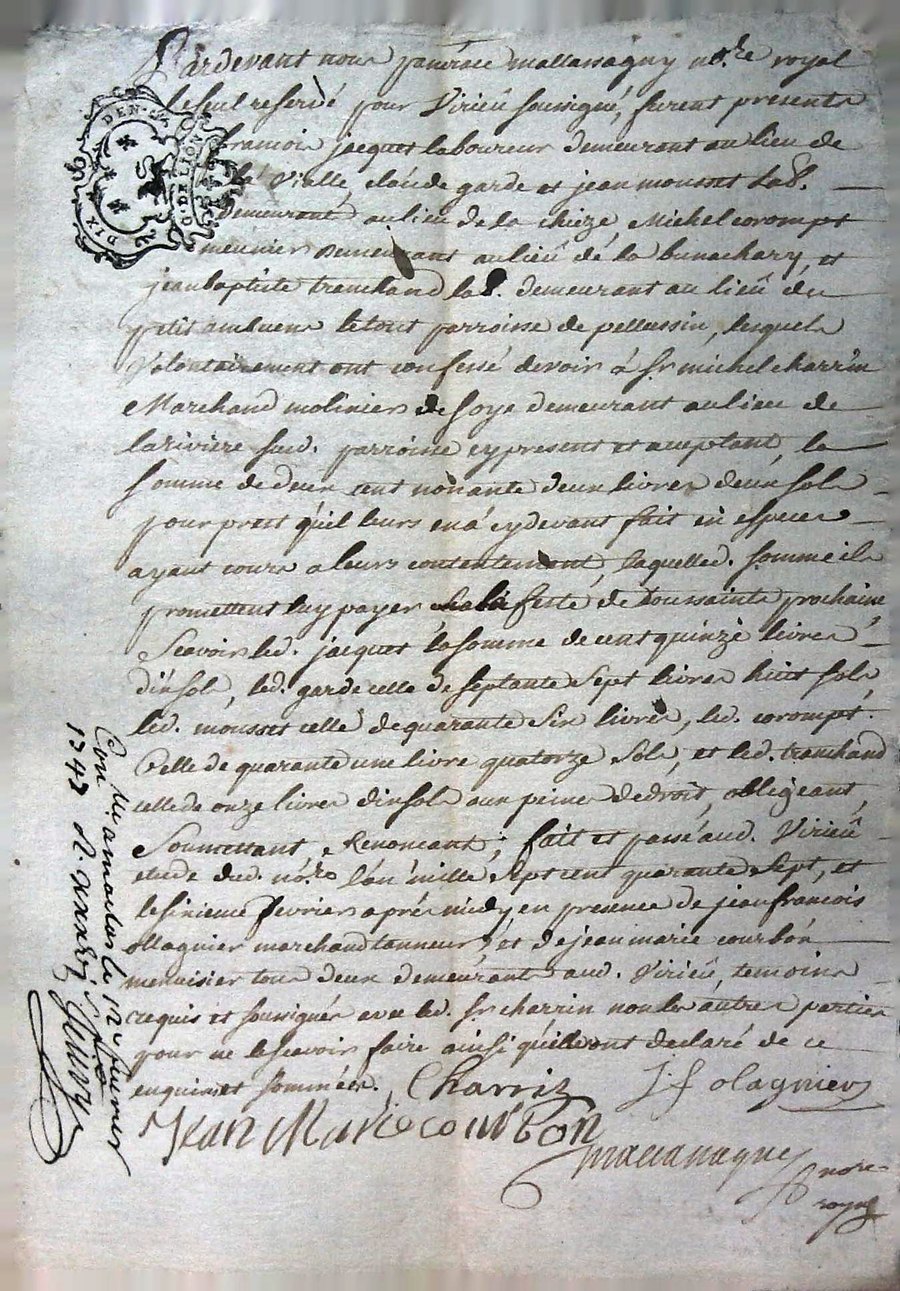 Pardevant nous notre royal
et seul reservé pour Virieû soussigné, furent presents
francois jacques laboureur demeurant au lieu de
Vialle, claude garde et jean mousset lab.
demeurant au lieu de la chieze, Michel corompt
meunier demeurant au lieû dé la bunachary, et
jean baptiste tranchand lab. demeurant au lieû du
petit ambuens le tout parroisse de pellussin, lesquels
Volontairement ont confessé devoir à sr michel charrin
Marchand molinier de soye demeurant au lieu de
lariviere sud. parroisse cy present et aceptant, la
somme de deux cent nonante deux livres deux sols
pour prest qu'il leurs en a cy devant fait en especes
ayant cours a leurs contentement, laquelled. somme ils
promettent luy payer a la feste de toussaints prochaine
Scavoir led. jacques la somme de cent quinze livres
dix sols, led. garde celle de septante sept livres huit sols
led. mousset celle de quarante six livres, led. corompt
Celle de quarante une livre quatorze sols, et led. tranchand
celle de onze livres dix sols aux peines de droit, obligeant,
Soumettant, Renoncant, fait et passé aud. Virieû
etude dud. nore l'an mille sept cent quarante sept, et
le sixieme fevrier aprés midy en presence de jean francois
ollagnier marchand tanneur, et de jean marie courbon
menuisier tous deux demeurant aud. Virieû, temoins
requis et soussignés avec led. sr charrin non les autres parties
pour ne le scavoir faire ainsi qu'ils ont declaré de ce
enquis et sommés. Charrin J f olagnier
Jean Marie courbon
nore
royal
Con. a maclas le 12e fevrier
1747 R.
DIX DEN.
G. DE LION